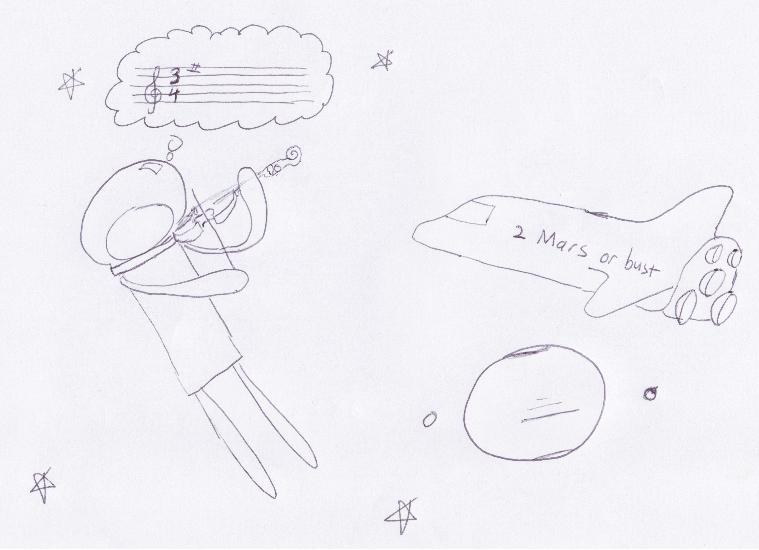 3
4
2 Mars or bust